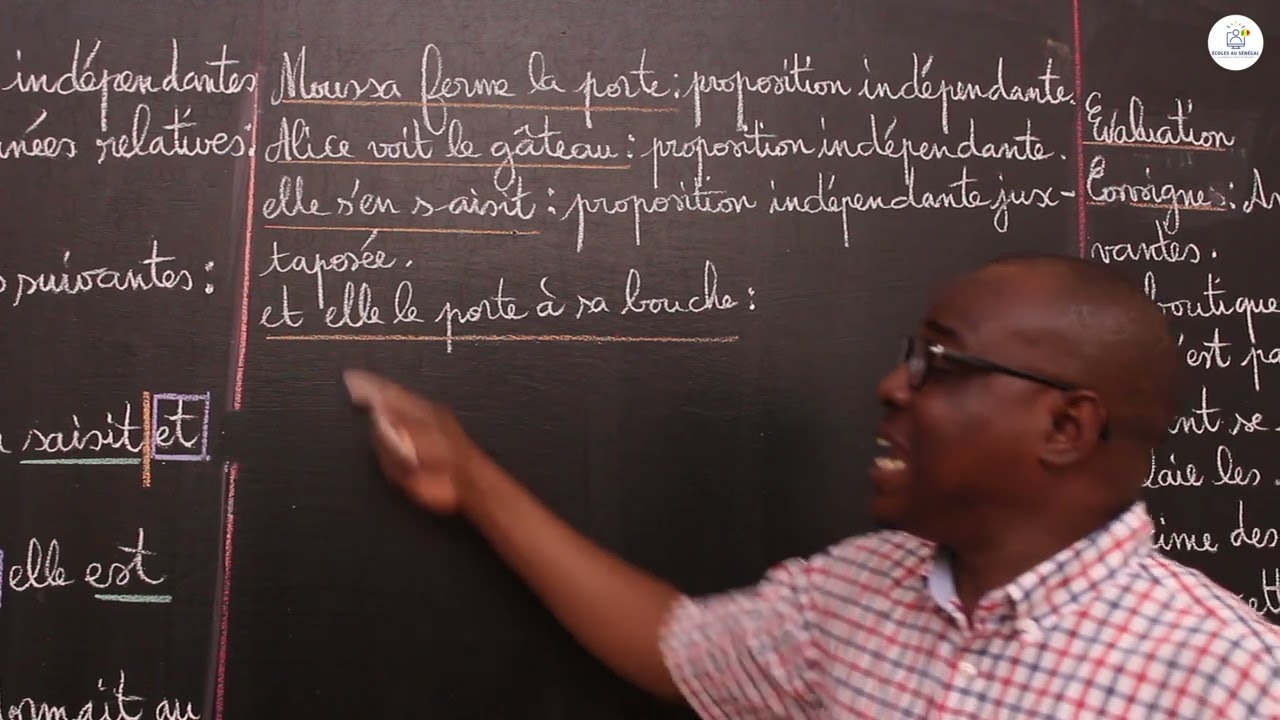 indépendantes
nées relatives:
suivantes:
saisit et
elle est
ormait au
Moussa ferme la porte: proposition indépendante.
Alice voit le gâteau: proposition indépendante.
elle s'en saisit: proposition indépendante jux-
taposée.
et elle le porte à sa bouche:
Evaluation
Consigne: An
vantes.
boutique
'est pa
nt se
laie les
ime des
ett
ÉCOLES AU SÉNÉGAL